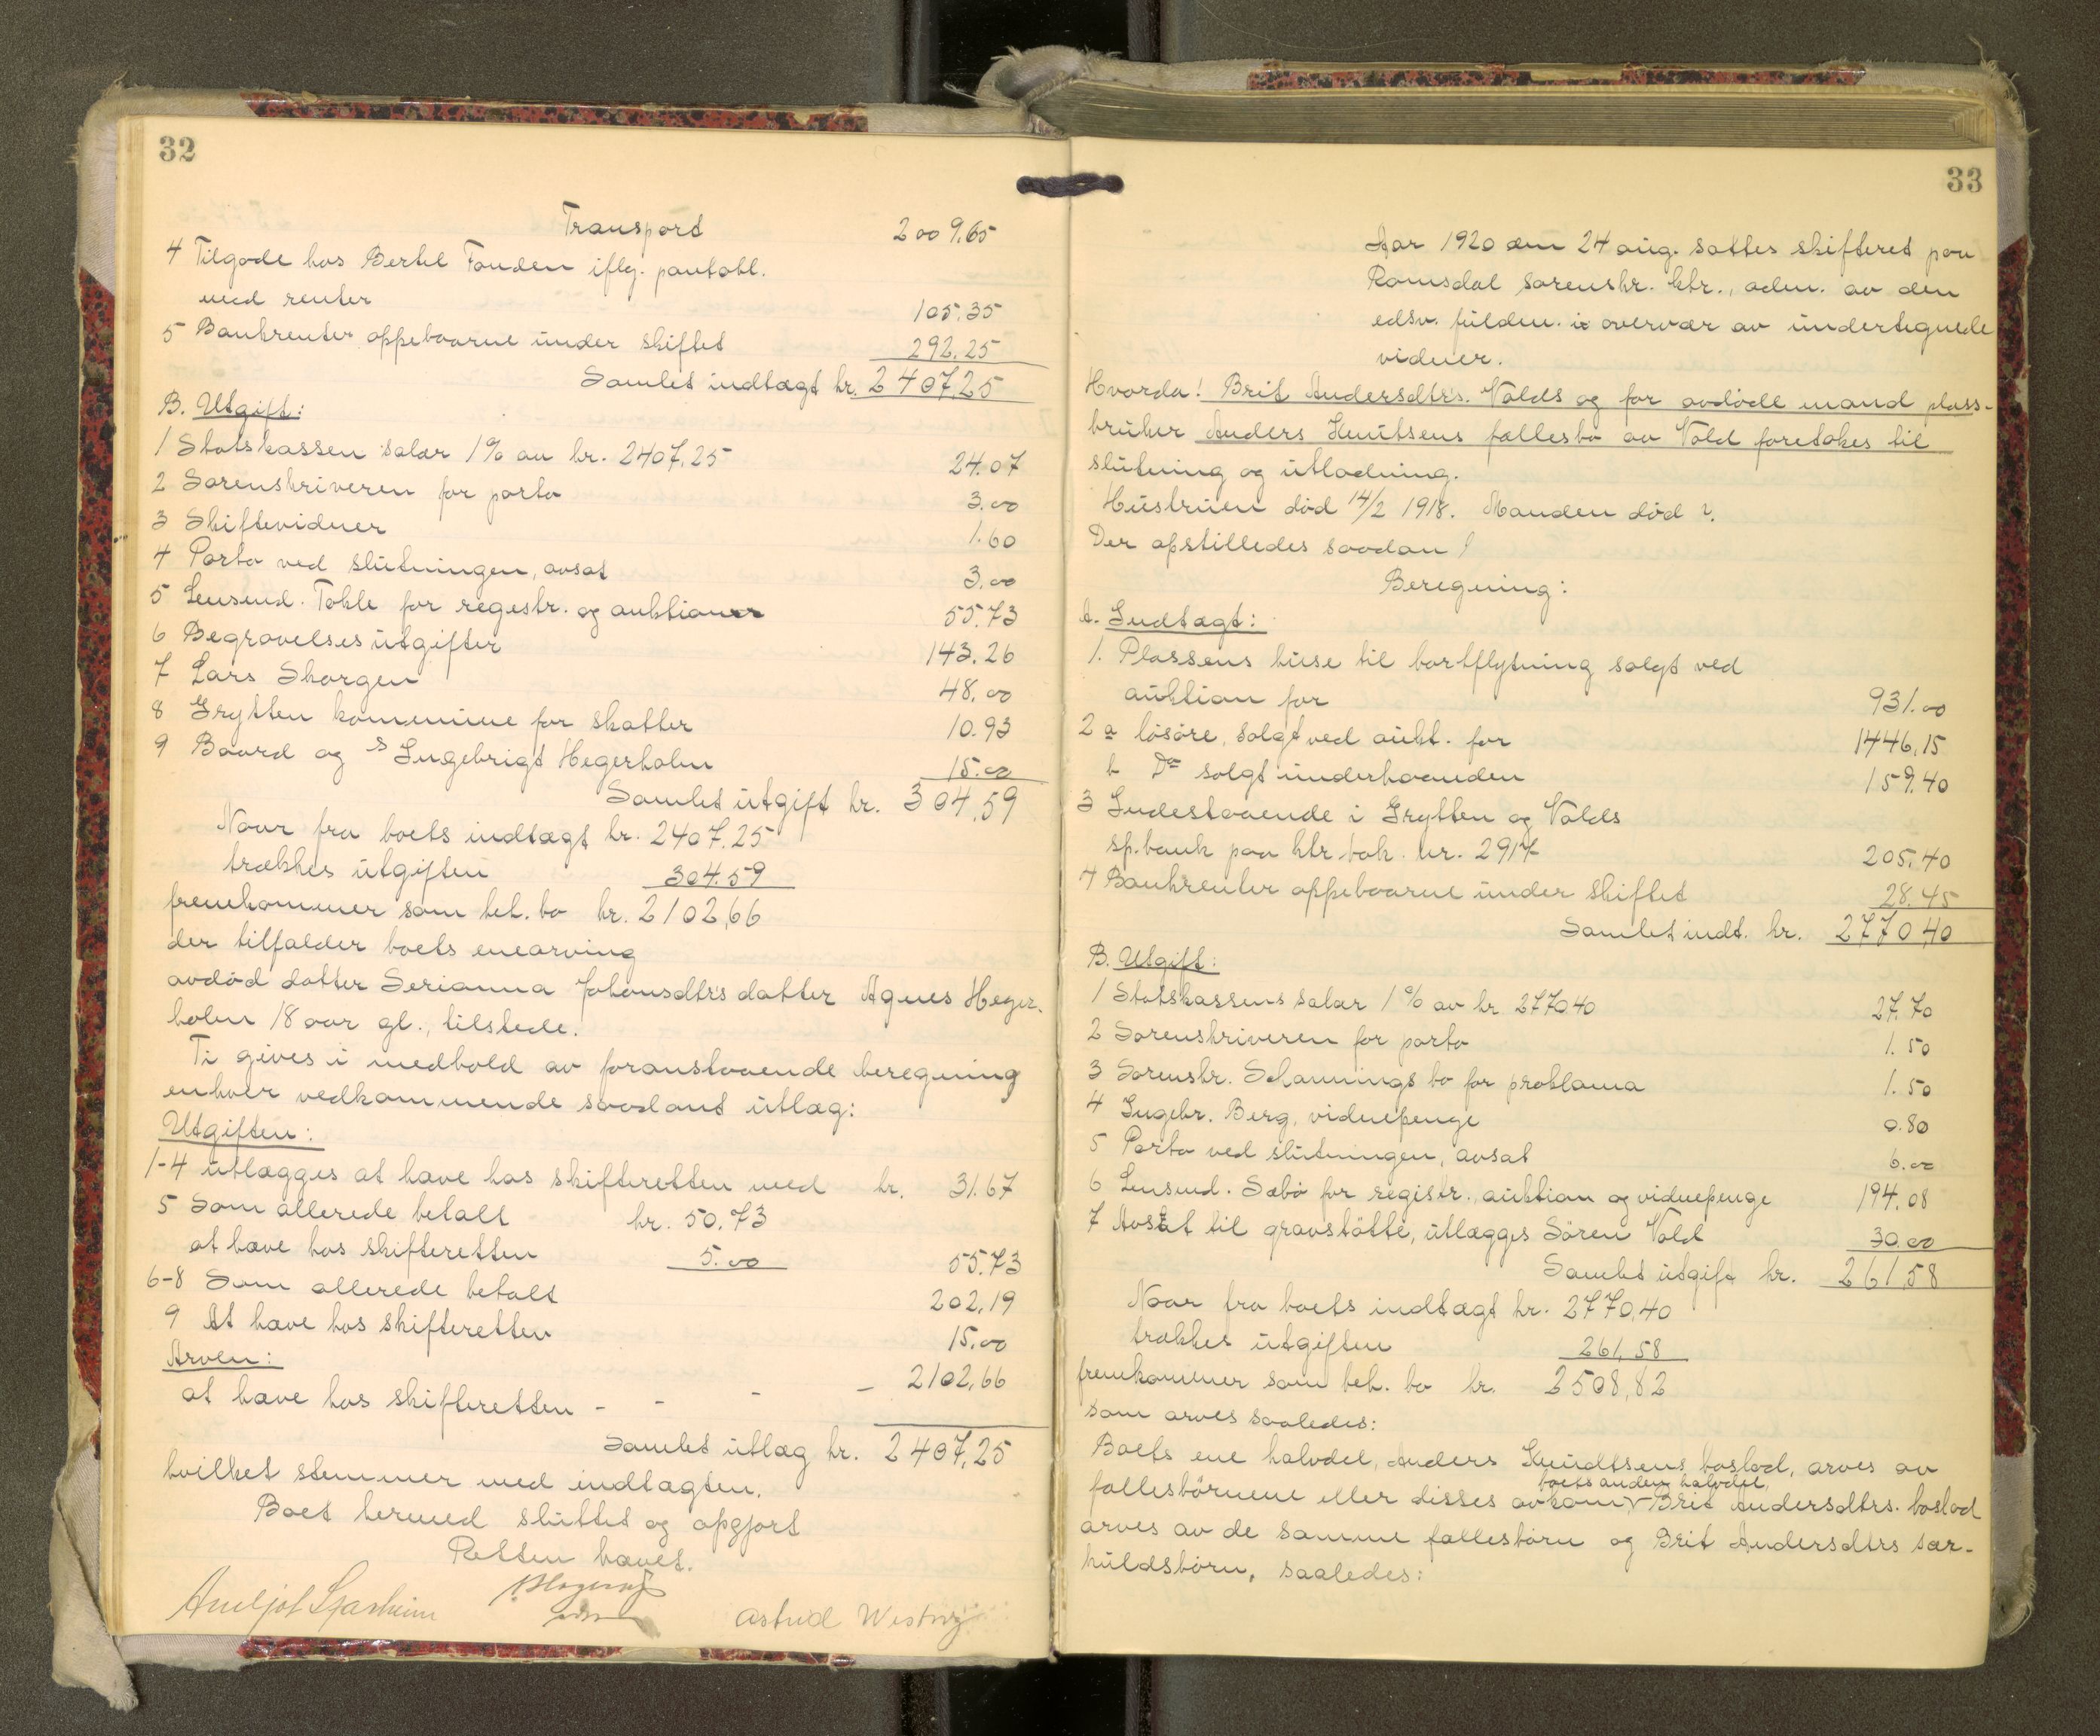 32
Transport 2009.65
4 Tilgode hos Bertel Fonden iflg. pantobl.
med renter 105.35
5 Bankrenter oppebaarne under skiftet 292.25
Samlet indtægt kr. 2407,25
B. Utgift:
1 Statskassen salær 1% av kr. 2407.25 24.07
2 Sorenskriveren for porto 3.00
3 Skiftevidner 1.60
4 Porto ved slutningen, avsat 3.00
5 Lensmd. Tokle for registr. og auktioner 55.73
6 Begravelsesutgifter 143.26
7 Lars Skorgen 48.00
8 Grytten kommune for skatter 10.93
9 Baard og Ingebrigt Hegerholm 15.00
Samlet utgift kr. 304,59
Naar fra boets indtægt kr. 2407.25
trækkes utgiften 304.59
fremkommer som beh. bo kr. 2102,66
der tilfalder boets enearving
avdød datter Serianna Johansdtrs datter Agnes Heger-
holm 18 aar gl., tilstede.
Ti gives i medhold av foranstaaende beregning
enhver vedkommende saadant utlæg:
Utgiften:
1-4 utlægges at hæve hos skifteretten med kr. 31.67
5 Som allerede betalt kr. 50.73
at hæve hos skifteretten 5.00 55.73
6-8 Som allerede betalt 202,19
9 At hæve hos skifteretten 15.00
Arven:
at hæve hos skifteretten - - - - 2102,66
Samlet utlæg kr. 2407,25
hvilket stemmer med indtægten.
Boet hermed sluttet og opgjort
Retten hævet.
Astrid
33
Aar 1920 den 24 aug. sattes skifteret paa
Romsdal sorenskr. ktr., adm. av den
edsv. fuldm. i overvær av undertegnede
vidner.
Hvorda! Brit Andersdtrs. Volds og før avdøde mand plass-
bruker Anders Knutsens fællesbo av Vold foretokes til
slutning og utlodning.
Hustruen død 14/2 1918. Manden død ?.
Der opstilledes saadan!
Beregning:
A. Indtægt:
1. Plassens huse til bortflytning solgt ved
auktion for 931.00
2 a løsøre, solgt ved aukt. for 1446,15
b Do solgt underhaanden 159.40
3 Indestaaende i Grytten og Volds
sp.bank paa ktr.bok. nr. 2917 205.40
4 Bankrenter oppebaarne under skiftet 28.45
Samlet indt. kr. 2770,40
B. Utgift:
1 Statskassens salær 1% av kr 2770.40 27.70
2 Sorenskriveren for porto 1.50
3 Sorenskr. Schannings bo for proklama 1.50
4 Ingebr. Berg, vidnepenge 0.80
5 Porto ved slutningen, avsat 6.00
6 Lensmd. Sæbø for registr., auktion og vidnepenge 194.08
7 Avsat til gravstøtte, utlægges Søren Vold 30.00
Samlet utgift kr. 261,58
Naar fra boets indtægt kr. 2770,40
trækkes utgiften 261,58
fremkommer som beh. bo kr. 2508,82
som arves saaledes:
Boets ene halvdel, Anders Knudtsens boslod, arves av
boets anden halvdel,
fællesbørnene eller disses avkom, Brit Andersdtrs. boslod
arves av de samme fællesbørn og Brit Andersdtrs sær-
kuldsbørn, saaledes: